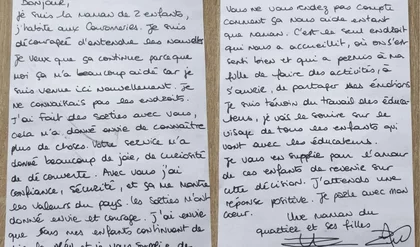 Bonjour,
je suis la maman de 2 enfants,
j'habite aux Couronneries. Je suis
découragée d'entendre les nouvelles
Je veux que ça continue parce que
moi ça m'a beaucoup aidé car je
suis venue ici nouvellement. Je
ne connaissais pas les endroits.
J'ai fait des sorties avec vous,
cela m'a donné envie de connaître
plus de choses. Votre service m'a
donné beaucoup de joie, de curiosité
de découverte. Avec vous j'ai
confiance, sécurité, et ça me montre
les valeurs du pays. les sorties m'ont
donné envie et courage. J'ai envie
que mes enfants continuent de
et je vous supplie de
Vous ne vous rendez pas compte
comment ça nous aide en tant
que maman. C'est le seul endroit
qui nous a accueillit, où on s'est
senti bien et qui a permis à ma
fille de faire des activités, à
s'ouvrir, de partager ses émotions
Je suis témoin du travail des éduca-
teurs, je vois le sourire sur le
visage de tous les enfants qui
vont avec les éducateurs.
Je vous en supplie pour l'amour
de ces enfants de revenir sur
cette décision. J'attends une
réponse positive. Je parle avec mon
cœur.
Une maman du
quartier et ses filles